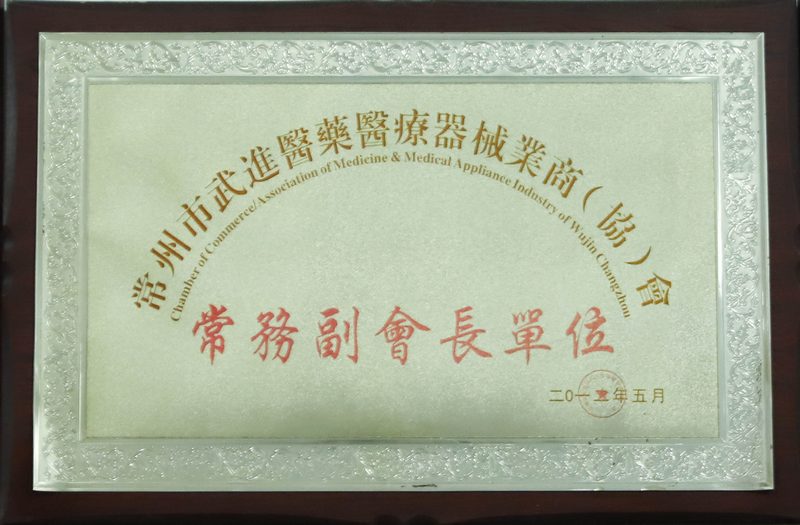 常州市武進醫藥醫療器械業商（協）會
Chamber of Commerce/Association of Medicine & Medical Appliance Industry of Wujin Changzhou
常務副會長單位
二0一五年五月